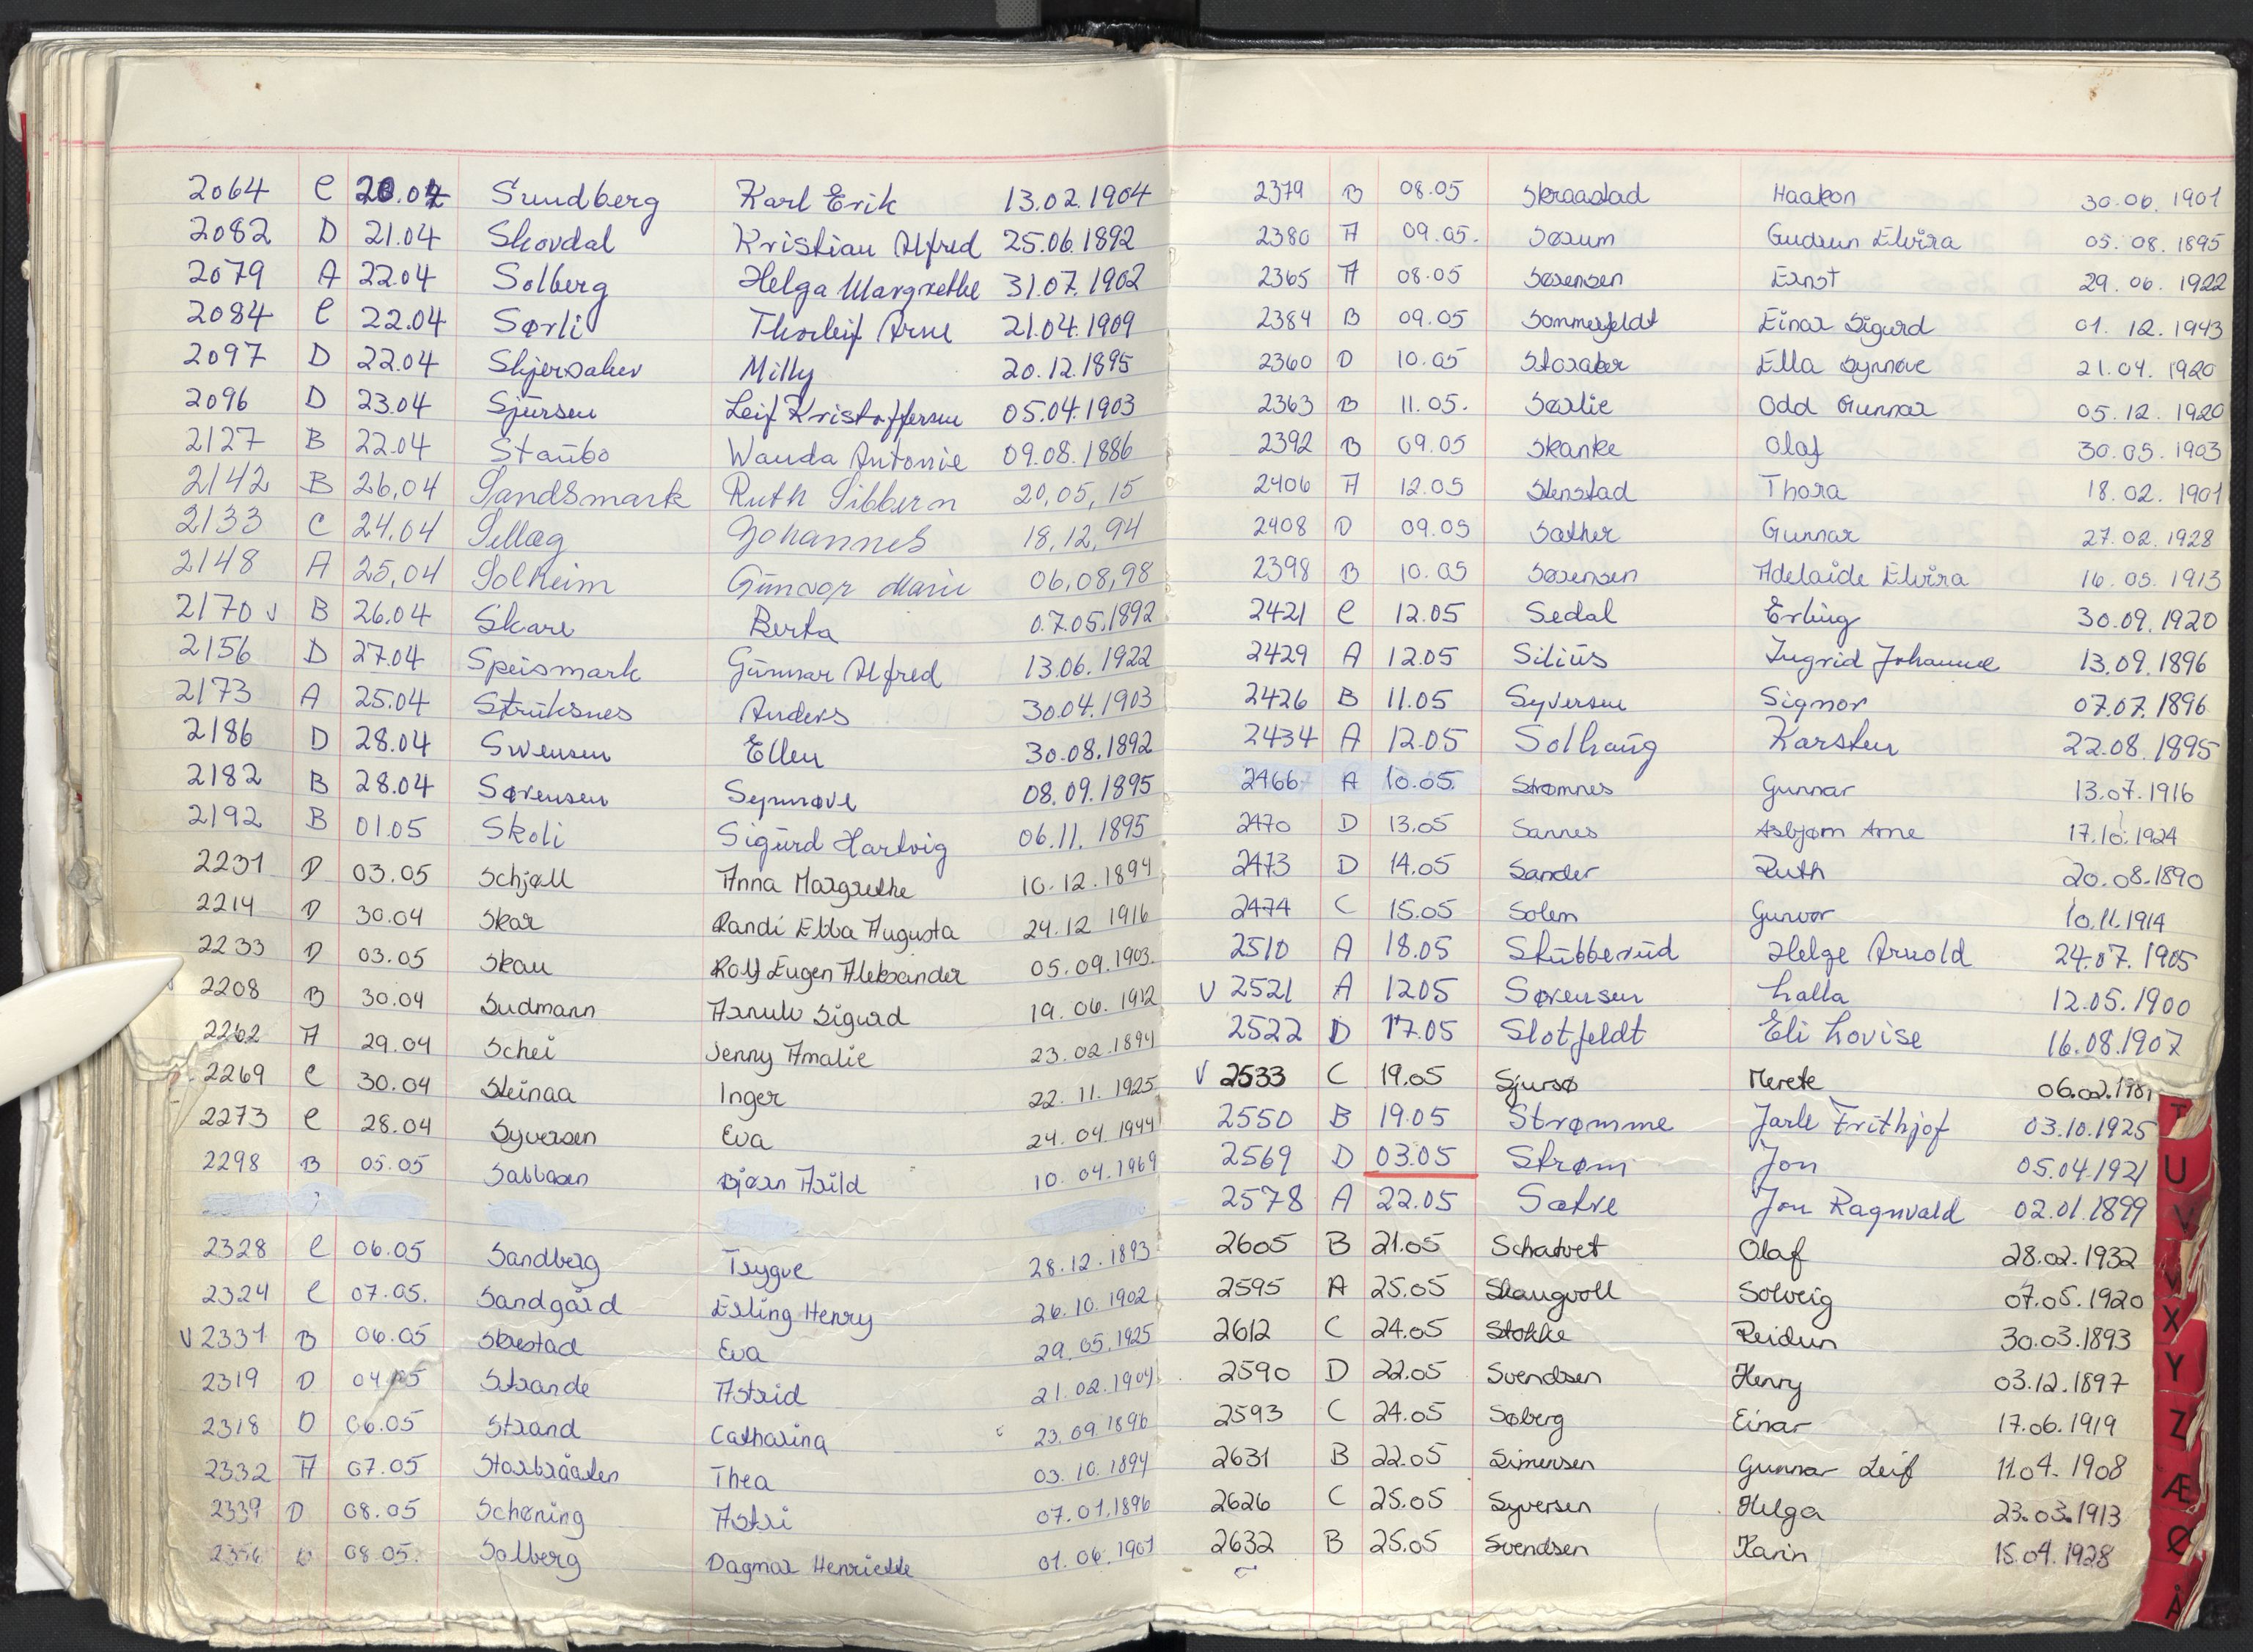 2064 C 20.04 Sundberg Karl Erik 13.02.1904
2082 D 21.04 Skovdal Kristian Alfred 25.06.1892
2079 A 22.04 Solberg Helga Margrethe 31.07.1902
2084 C 22.04 Sørli Thorleif Arne 21.04.1909
2097 D 22.04 Skjersaker Milly 20.12.1895
2096 D 23.04 Sjürsen Leif Kristoffersen 05.04.1903
2127 B 22.04 Staübo Wanda Antonie 09.08.1886
2142 B 26,04 Sandsmark Ruth Sibbern 20,05,15
2133 C 24,04 Sellæg Johannes 18,12,94
2148 A 25,04 Solheim Günvor Marie 06,08,98
2170 v B 26.04 Skare Berta 07.05.1892
2156 D 27.04 Speismark Günnar Alfred 13.06.1922
2173 A 25.04 Strüksnes Anders 30.04.1903
2186 D 28.04 Swensen Ellen 30.08.1892
2182 B 28.04 Sørensen Synnøve 08.09.1895
2192 B 01.05 Skoli Sigürd Hartvig 06.11.1895
2231 D 03.05 Schjøll Anna Margrethe 10.12.1894
2214 D 30.04 Skar Randi Ebba Augusta 24.12 1916
2233 D 03.05 Skau Rolf Eugen Aleksander 05.09.1903.
2208 B 30.04 Sudmann Arnulv Sigurd 19.06.1912
2262 A 29.04 Schei Jenny Amalie 23.02.1894
2269 C 30.04 Steinaa Inger 22.11.1925
2273 C 28.04 Syversen Eva 24.04 1944
2298 B 05.05 Bjørn Arild 10.04.1969
2328 C 06.05 Sandberg Trygve 28.12.1893
2324 C 07.05. Sandgård Erling Henry 26.10.1902
V 2331 B 06.05 Eva 29.05.1925
2319 D 04.05 Strande Astrid 21.02.1904
2318 D 06.05 Strand Catharina 23.09 1896
2332 A 07.05 Storbråaten Thea 03.10.1894
2339 D 08.05 Schøning Astri 07.01.1896
2356 D 08.05. Solberg Dagmar Henriette 01.06.1901
2379 B 08.05 Skraastad Haakon 30.06.1901
2380 A 09.05. Sørum Gudrun Elvira 05.08.1895
2365 A 08.05 Sørensen Ernst 29.06.1922
2384 B 09.05 Sommerfeldt Einar Sigurd 01.12.1943
2360 D 10.05 Storaker Ella Synnøve 21.04.1920
2363 B 11.05. Sørlie Odd Gunnar 05.12.1920
2392 B 09.05 Skanke Olaf 30.05.1903
2406 A 12.05 Stenstad Thora 18.02.1901
2408 D 09.05 Sæther Gunnar 27.02.1928
2398 B 10.05 Sørensen Adelaide Elvira 16.05.1913
2421 C 12.05 Sedal Erling 30.09.1920
2429 A 12.05 Siliüs Ingrid Johanne 13.09.1896
2426 B 11.05 Syversen Signor 07.07.1896
2434 A 12.05 Solhaüg Karsten 22.08.1895
2466 A 10.05. Strømnes Gunnar 13.07.1916
2470 D 13.05 Sannes Asbjørn Arne 17.10.1924
2473 D 14.05 Sander Ruth 20.08.1890
2474 C 15.05 Solem Gunvor 10.11.1914
2510 A 18.05 Stübberüd Helge Arnold 24.07.1905
V 2521 A 1205 Sørensen Lalla 12.05.1900
2522 D 17.05 Slotfeldt Eli Lovise 16.08.1907
V 2533 C 19.05 Sjursø Merete 06.02.1901
2550 B 19.05 Strømme Jarle Frithjof 03.10.1925
2569 D 03.05 Strøm Jon 05.04.1921
2578 A 22.05 Sætre Jon Ragnvald 02.01.1899
2605 B 21.05 Schatvet Olaf 28.02.1932
2595 A 25.05 Skaugvoll Solveig 07.05.1920
2612 C 24.05 Stokke Reidun 30.03.1893
2590 D 22.05 Svendsen Henry 03.12.1897
2593 C 24.05 Søberg Einar 17.06.1919
2631 B 22.05 Simensen Gunnar Leif 11.04.1908
2626 C 25.05 Syversen Helga 23.03.1913
2632 B 25.05 Svendsen Karin 15.04.1928
T
U
V
V
X
Y
Z
Æ
Ø
Å